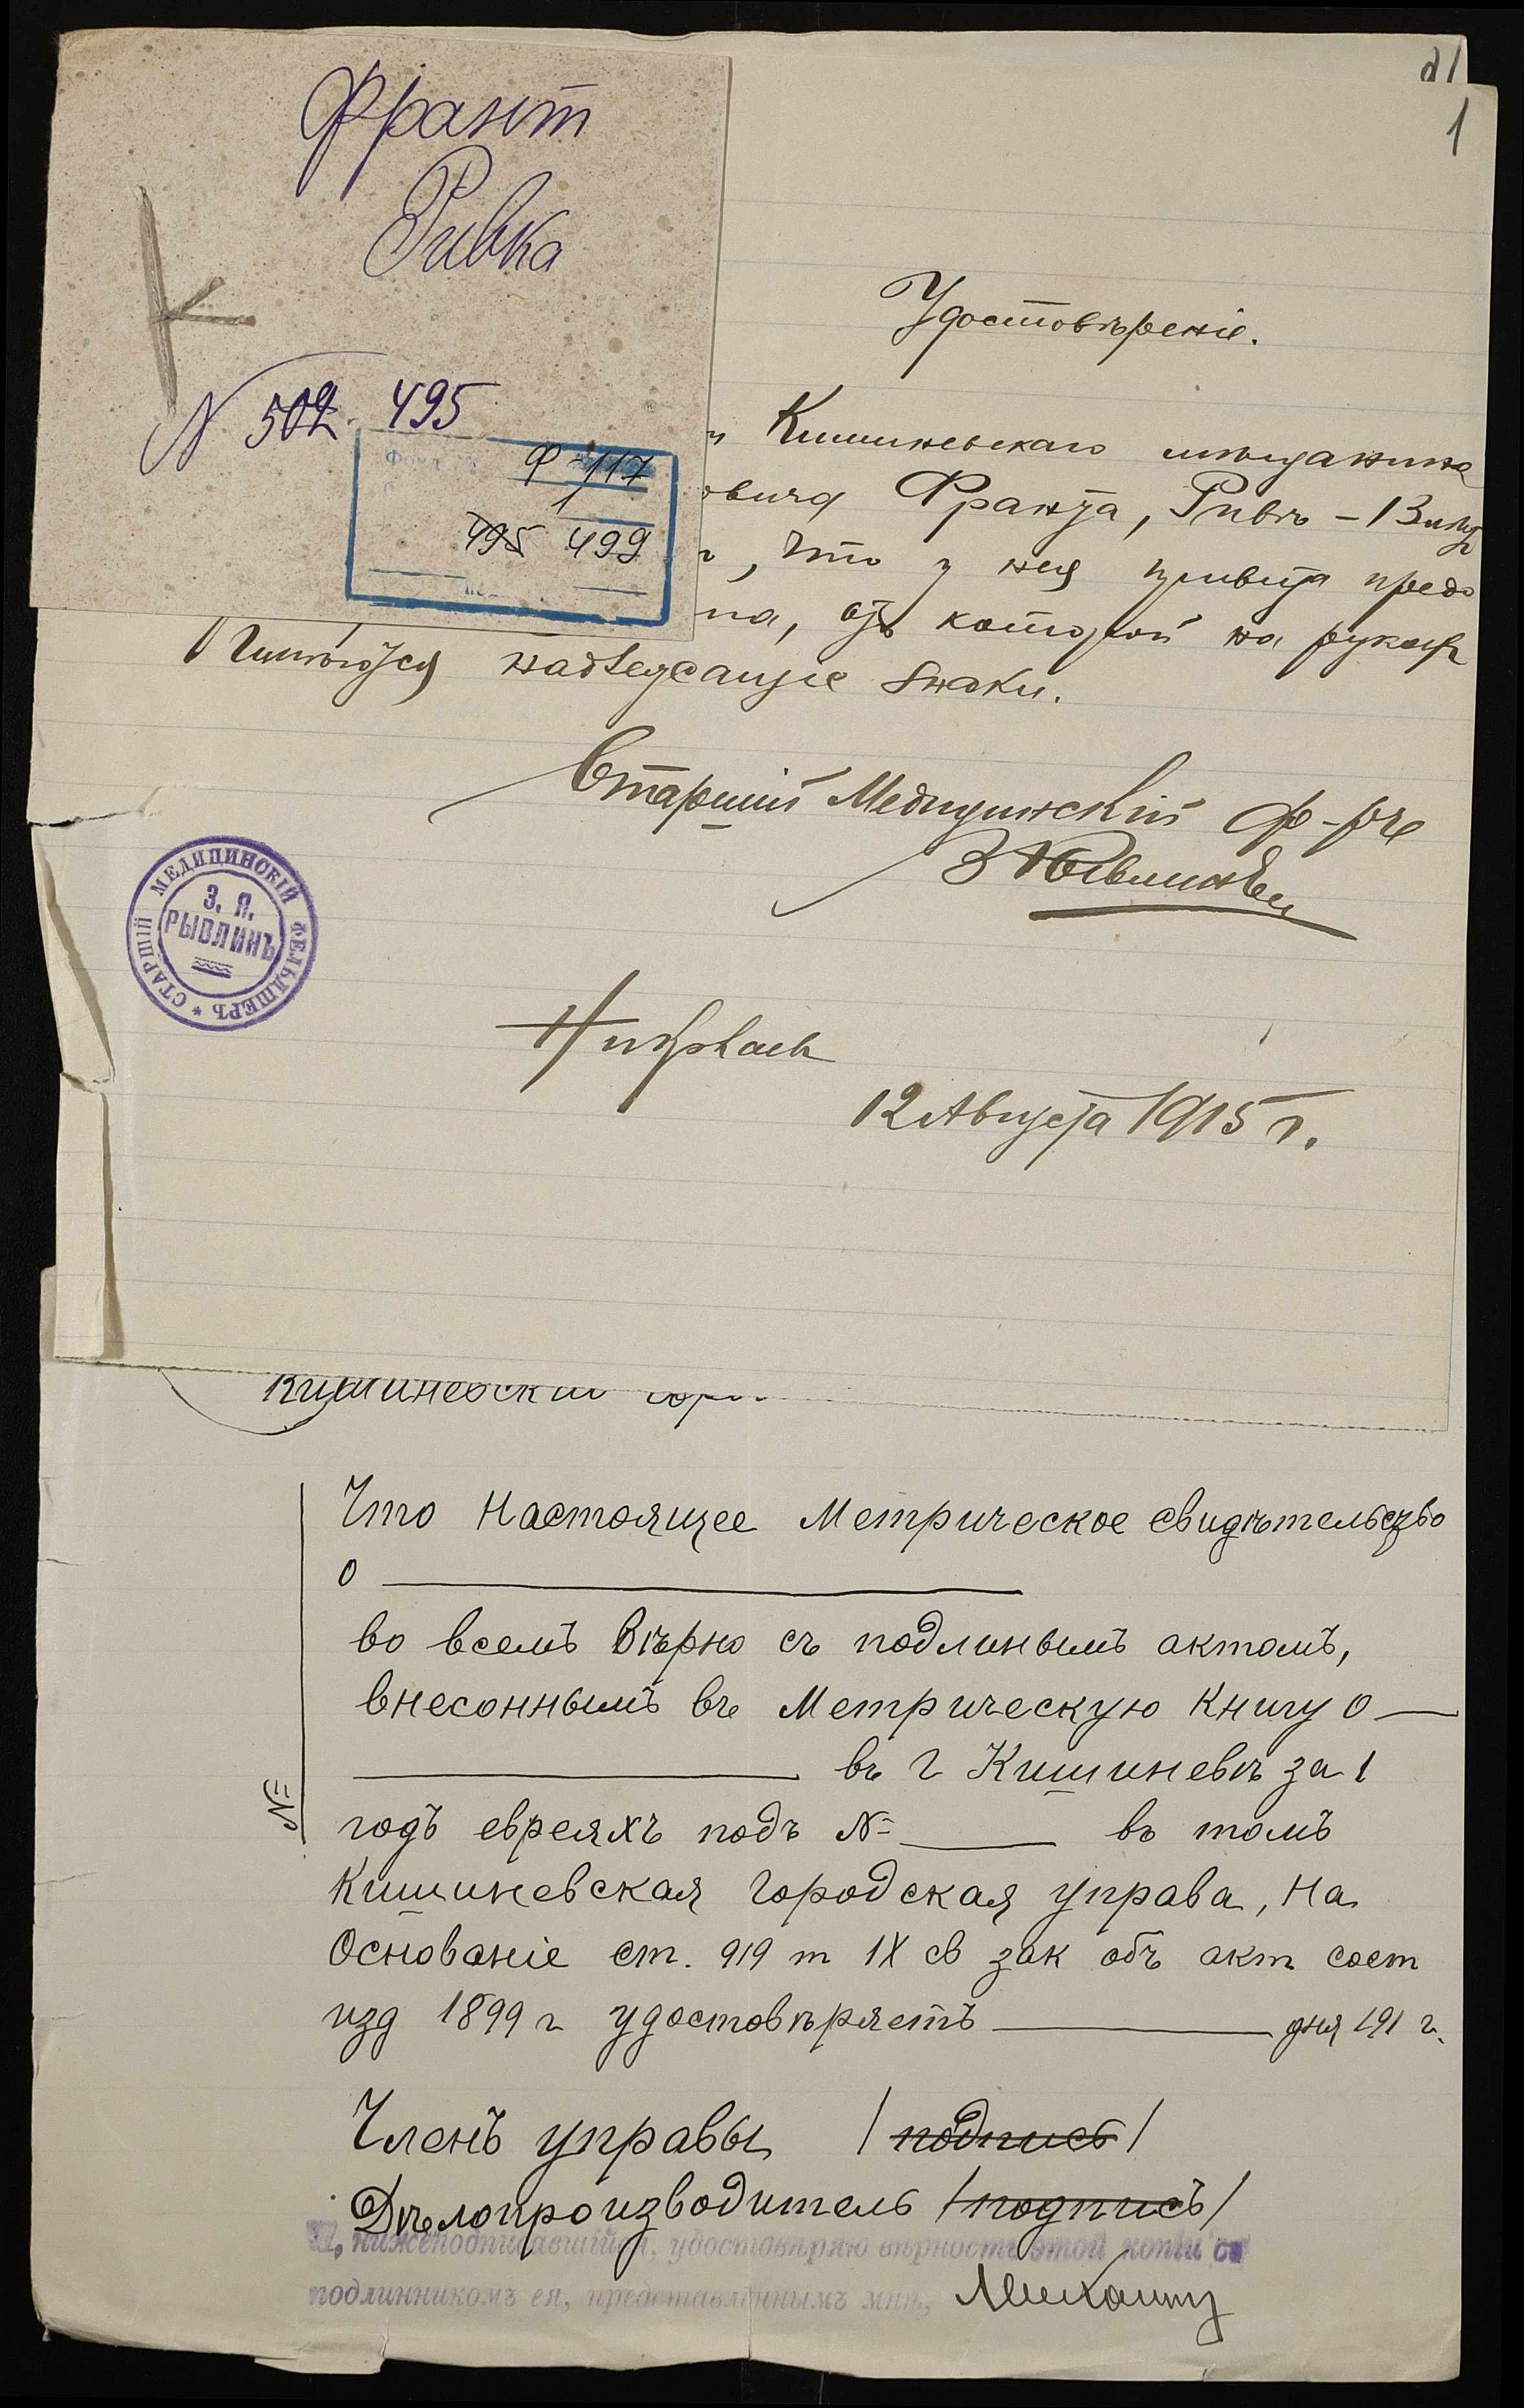 21
1
Франт
Ривка
N 502. 495
Ф-117
1
495 499
Удостовѣреніе.
Кишиневскаго мѣщанина
овича Франта, Ривѣ -
, что у нея привита предо
на, отъ которой на рукахъ
Имѣются надлежащіе знаки.
Старшій Медицинскій ф-ръ
СТАРШІЙ МЕДИЦИНСКІЙ ФЕЛЬДШЕРЪ *
З. Я.
РЫВЛИНЪ
12 Августа 1915 г.
Кишиневскій
Что Настоящее Метрическое свидѣтельство
о
во всемъ вѣрно съ подлинымъ актомъ,
внесоннымъ въ Метрическую Книгу о
въ г Кишиневѣ за 1
№
годъ евреяхъ подъ № въ томъ
Кишиневская Городская управа, на
Основаніе ст. 919 т IX св зак объ акт сост
изд 1899 г удостовѣряетъ дня 191 г.
Членъ управы /подпись/
Дѣлопроизводитель /подписъ/
Я, нижеподписавшійся, удостовѣряю вѣрность этой копіи съ
подлинникомъ ея, представленнымъ мнѣ,